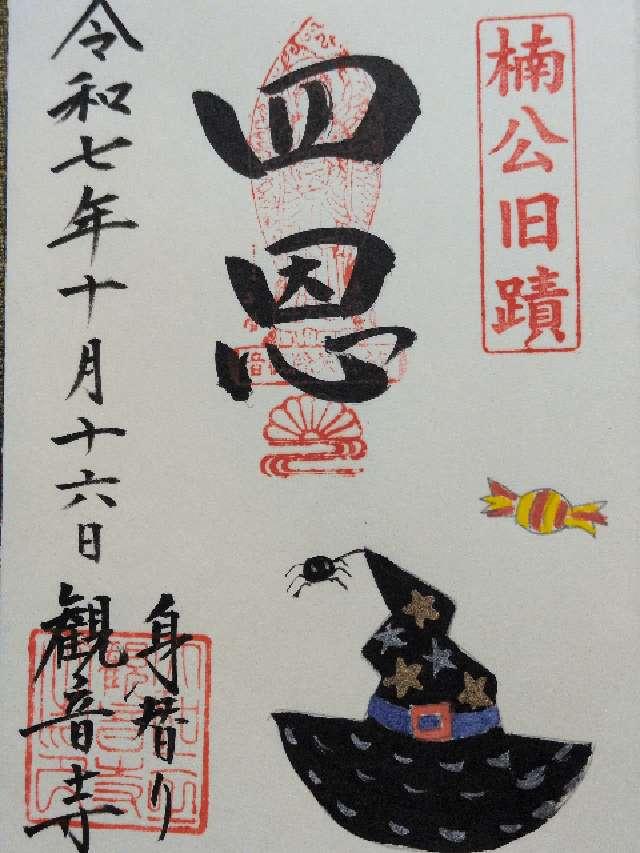 楠公旧蹟
四恩
令和七年十月十六日
身暦り
観音寺